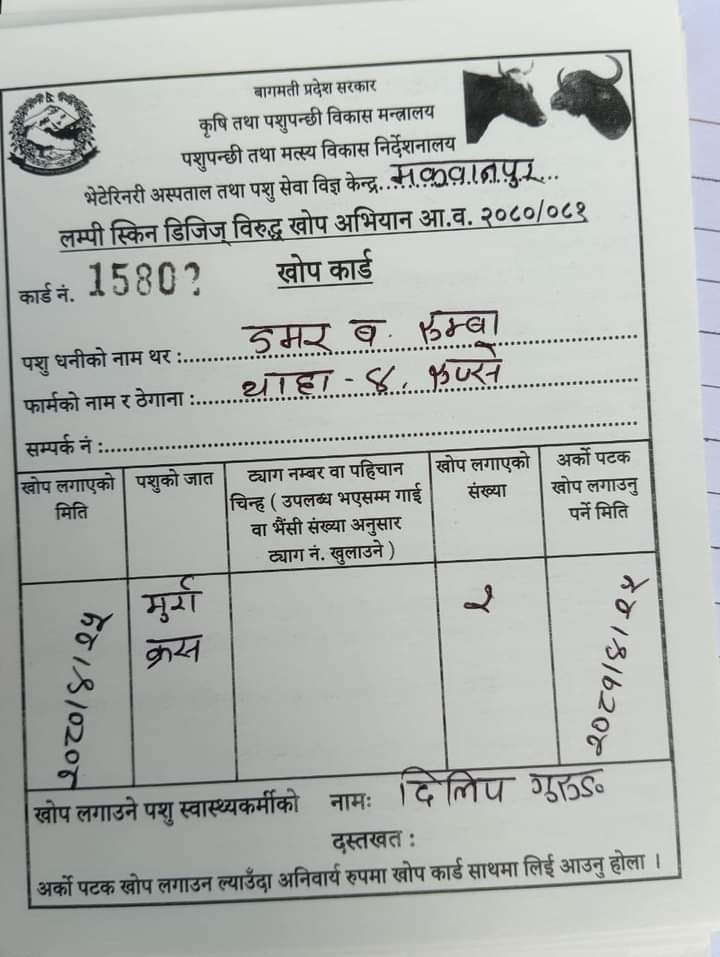 बागमती प्रदेश सरकार
कृषि तथा पशुपन्छी विकास मन्त्रालय
पशुपन्छी तथा मत्स्य विकास निर्देशनालय
भेटेरिनरी अस्पताल तथा पशु सेवा विज्ञ केन्द्र....मकवानपुर...
लम्पी स्किन डिजिज् विरुद्ध खोप अभियान आ.व. २०८०/०८१
कार्ड नं. 15802 खोप कार्ड
पशु धनीको नाम थर : डमर ब. रुम्बा
फार्मको नाम र ठेगाना : थाहा - ४,
सम्पर्क नं :
खोप लगाएको मिति
पशुको जात
ट्याग नम्बर वा पहिचान
चिन्ह ( उपलब्ध भएसम्म गाई
वा भैंसी संख्या अनुसार
ट्याग नं. खुलाउने )
खोप लगाएको
संख्या
अर्को पटक
खोप लगाउनु
पर्ने मिति
२०८०/४/२५
मुर्रा
क्रस
२
२०८१/४/२५
खोप लगाउने पशु स्वास्थ्यकर्मीको नामः दिलिप गुरुङ
दस्तखत :
अर्को पटक खोप लगाउन ल्याउँदा अनिवार्य रुपमा खोप कार्ड साथमा लिई आउनु होला ।